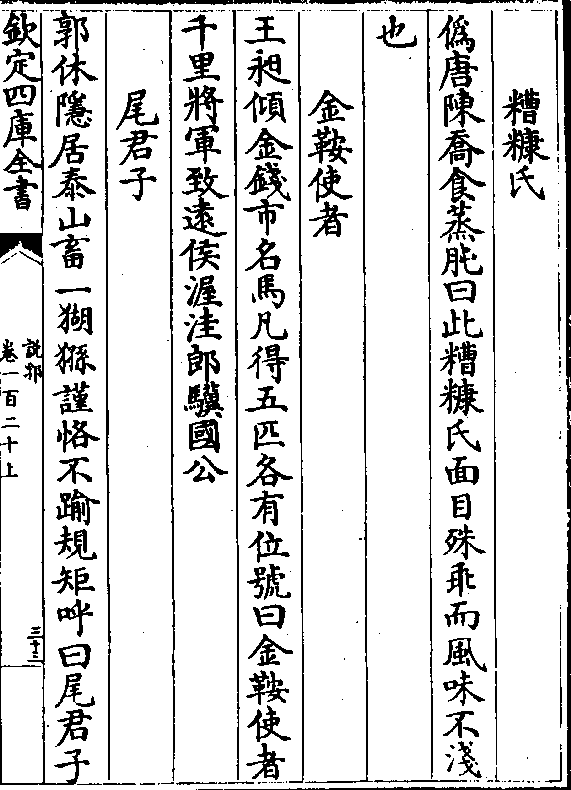 糟糠氏
僞唐陳喬食蒸肫曰此糟糠氏面目殊乖而風味不淺
也
金鞍使者
王昶傾金錢市名馬凡得五匹各有位號曰金鞍使者
千里將軍致遠侯渥洼郎驥國公
尾君子
郭休隱居泰山畜一猢猻謹恪不踰規矩呼曰尾君子
欽定四庫全書
說郛
卷一百二十上
三十三